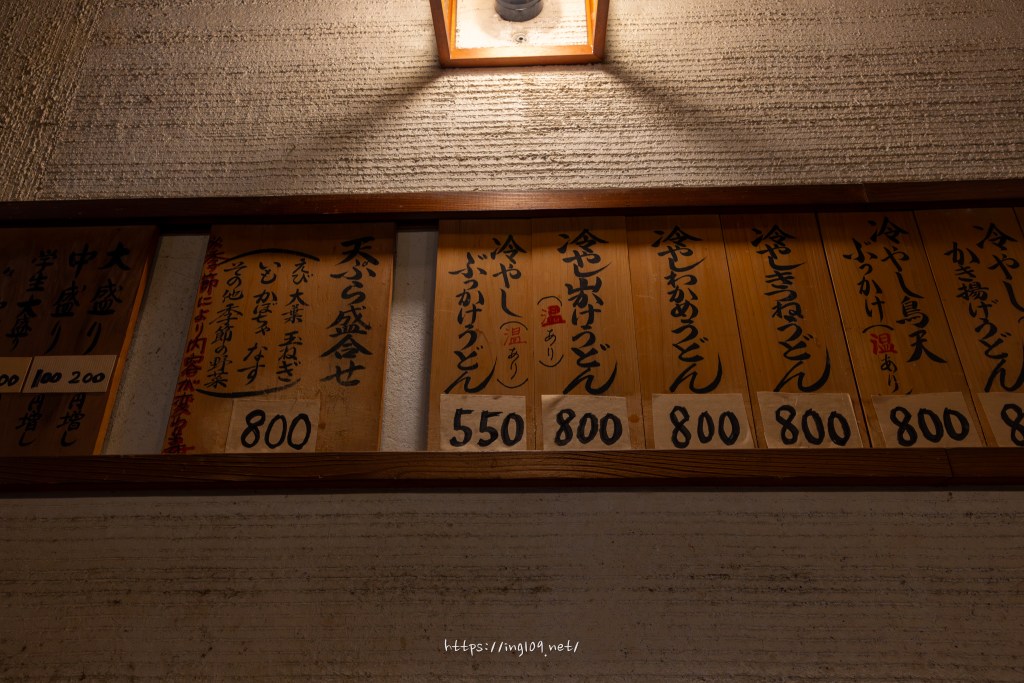 冷やし
かき揚げうどん
800
冷やし鳥天
ぶっかけ(温あり)
800
冷やしきつねうどん
800
冷やしわかめうどん
800
冷やし山かけうどん
(温あり)
800
冷やし(温あり)
ぶっかけうどん
550
天ぷら盛合せ
えび 大葉 玉ねぎ
いも かぼちゃ なす
その他季節の野菜
により内容が変わります
800
大盛り
200
円増し
中盛り
100
円増し
学生大盛
https://ing109.net/